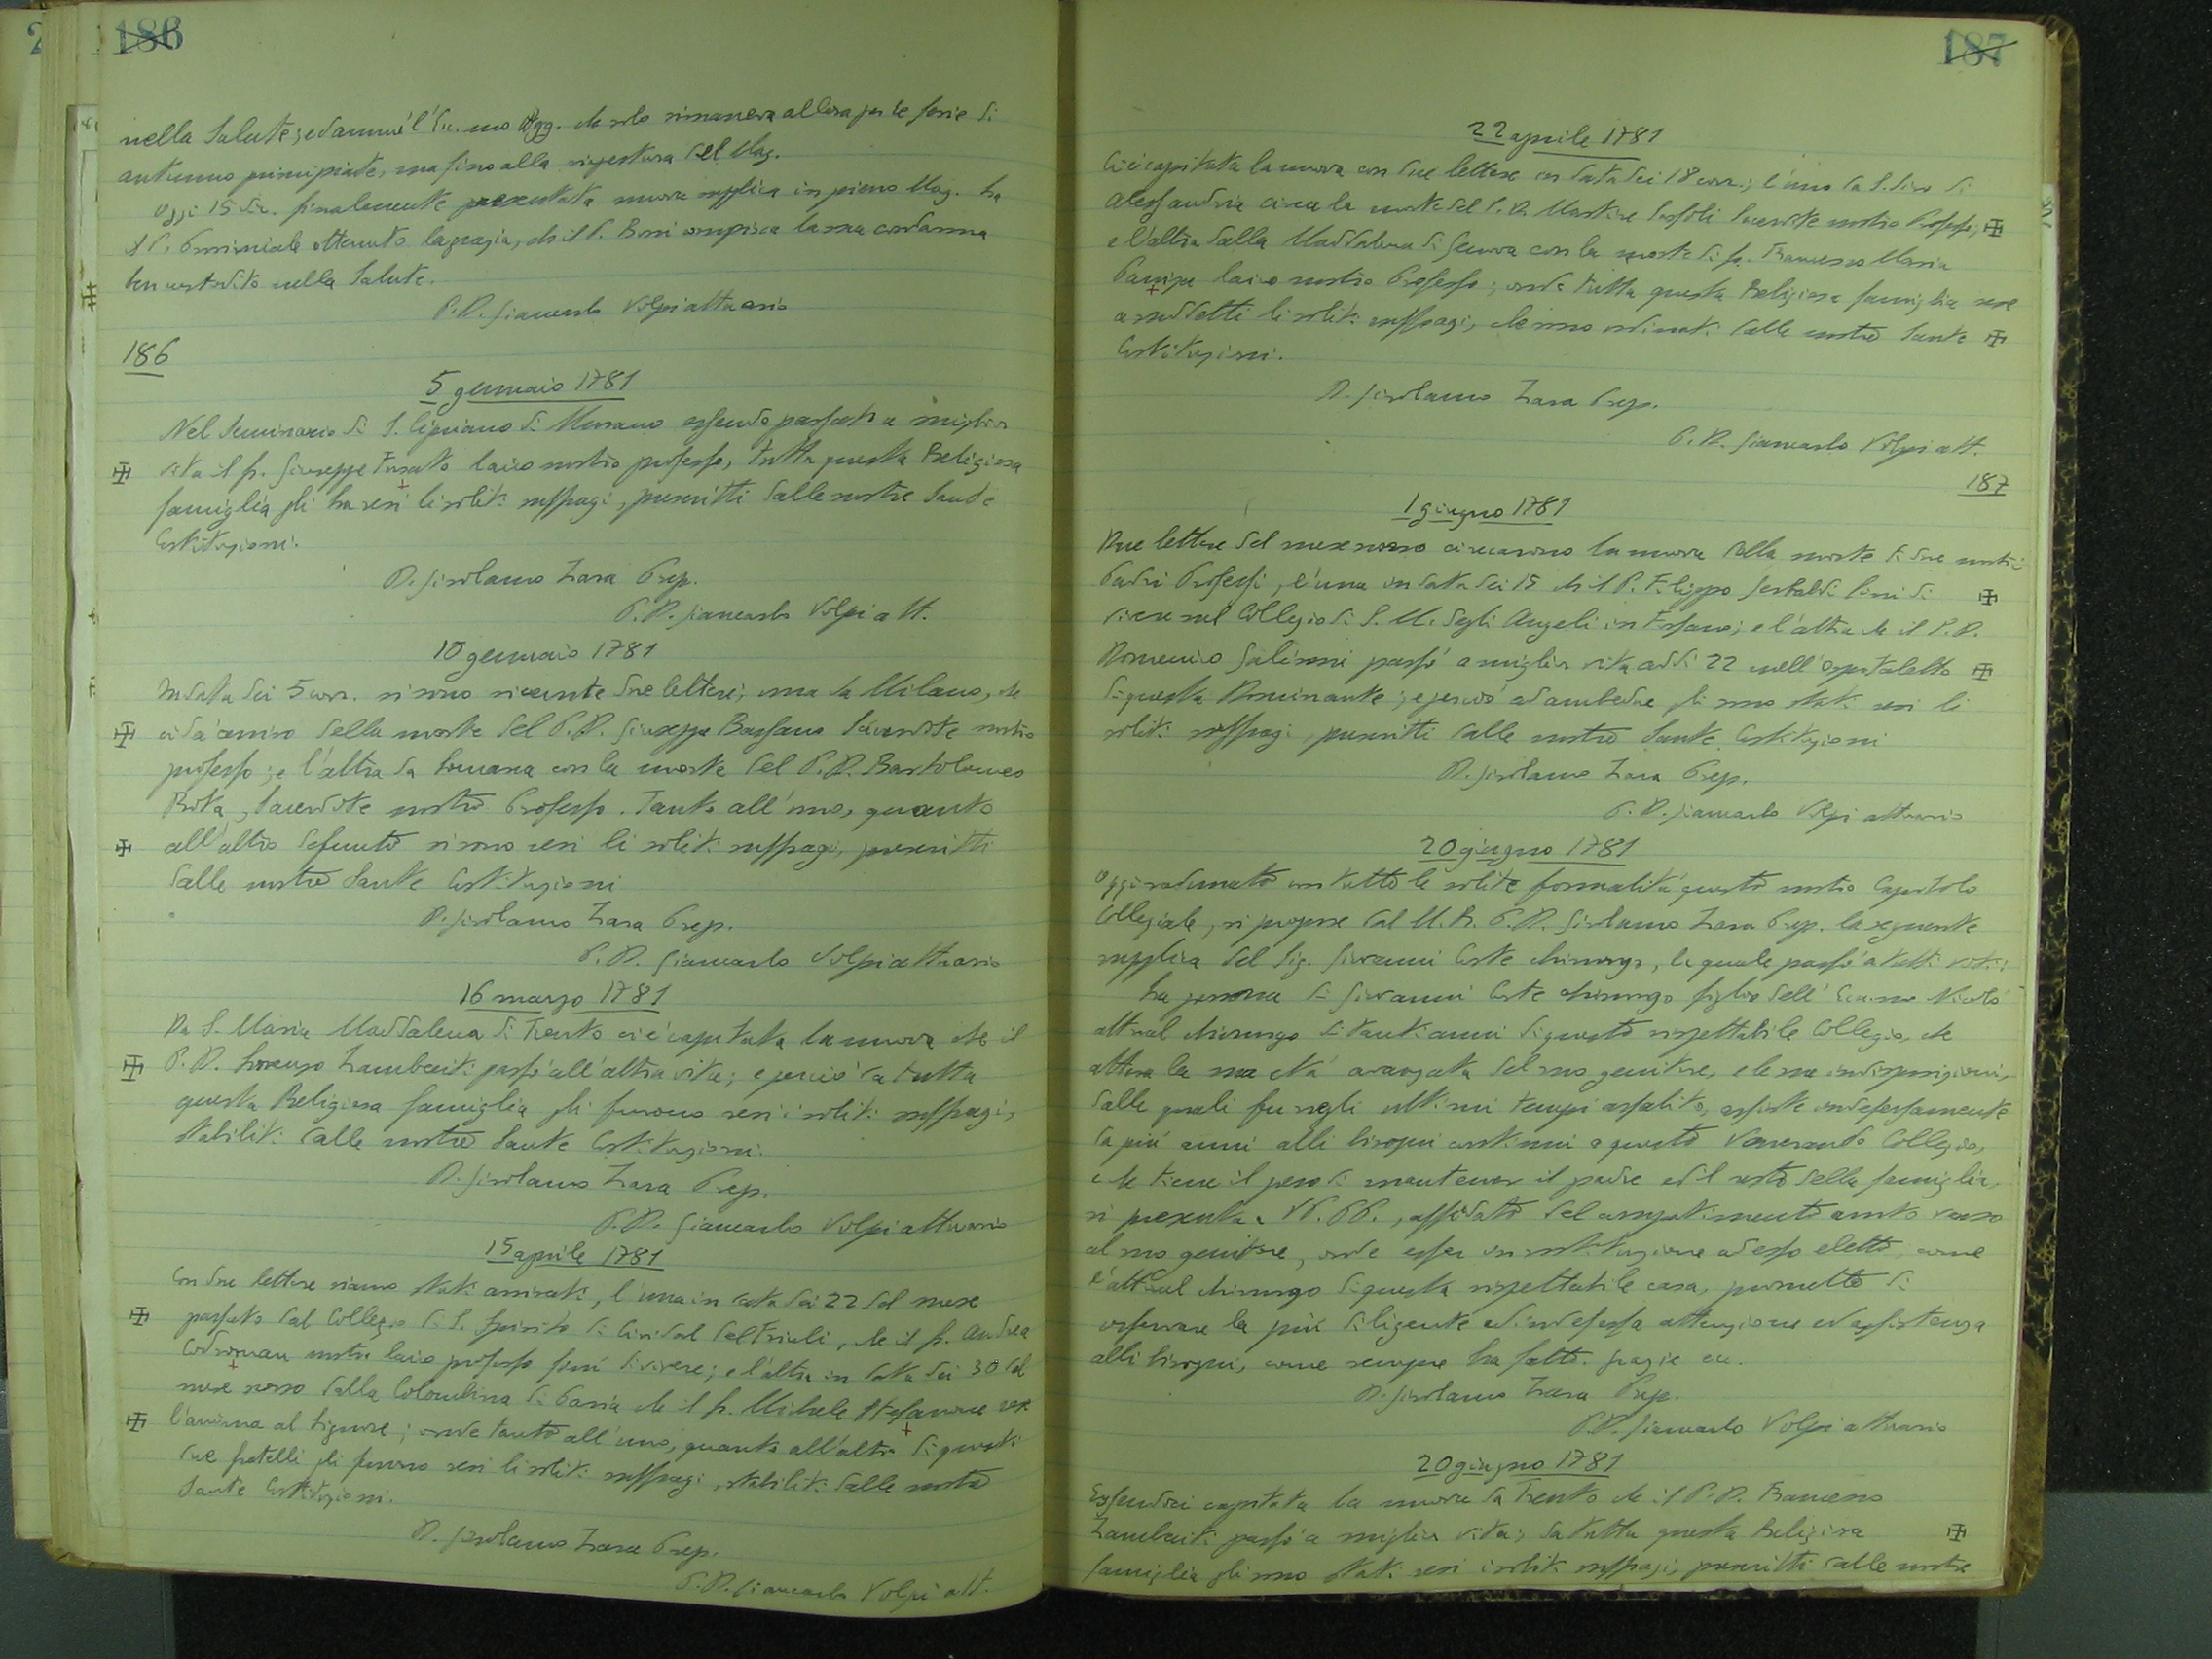 186
nella Salute; ed ammé l'Ecc.mo Agg. che solo rimaneva allora per le ferie di
autunno principiate, ma fino alla riapertura del Mag.
Oggi 15 dic. finalmente presentata nuova supplica in pieno Mag. ha
il P. Provinciale ottenuto la grazia, che il P. Boni compisca la sua condanna
ben custodito nella Salute.
P.D. Giancarlo Volpi attuario
186
5 gennaio 1781
Nel Seminario di S. Cipriano di Murano essendo passato a miglior
vita il fr. Giuseppe Fusato laico nostro professo, tutta questa Religiosa
famiglia gli ha resi li soliti suffragi, prescritti dalle nostre Sante
Costituzioni.
D. Girolamo Zara Prep.
P.D. Giancarlo Volpi att.
10 gennaio 1781
In data dei 5 corr. si sono ricevute due lettere; una da Milano, che
ci dà avviso della morte del P.D. Giuseppe Bassano Sacerdote nostro
professo; e l'altra da Somasca con la morte del P.D. Bartolomeo
Rota, Sacerdote nostro Professo. Tanto all'uno, quanto
all'altro defunto si sono resi li soliti suffragi, prescritti
dalle nostre Sante Costituzioni
D. Girolamo Zara Prep.
P.D. Giancarlo Volpi attuario
16 marzo 1781
Da S. Maria Maddalena di Trento ci è capitata la nuova che il
P.D. Lorenzo Zambaiti passò all'altra vita; e perciò da tutta
questa Religiosa famiglia gli furono resi i soliti suffragi,
stabiliti dalle nostre Sante Costituzioni.
D. Girolamo Zara Prep.
P.D. Giancarlo Volpi attuario
15 aprile 1781
Con due lettere siamo stati avvisati, l'una in data dei 22 del mese
passato dal Collegio di S. Spirito di Cividal del Friuli, che il fr. Andrea
Codroman nostro laico professo finì di vivere; e l'altra in data dei 30 del
mese scorso dalla Colombina di Pavia che il fr. Michele Stefanone rese
l'anima al Signore; onde tanto all'uno, quanto all'altro di questi
due fratelli gli furono resi li soliti suffragi, stabiliti dalle nostre
Sante Costituzioni.
D. Girolamo Zara Prep.
P.D. Giancarlo Volpi att.
187
22 aprile 1781
Ci è capitata la nuova con due lettere in data dei 18 corr.; l'una da S. Siro di
Alessandria circa la morte del P.D. Sacerdote nostro Professo;
e l'altra dalla Maddalena di Genova con la morte di fr. Francesco Maria
laico nostro Professo; onde tutta questa Religiosa famiglia rese
a suddetti li soliti suffragi, che sono ordinati dalle nostre Sante
Costituzioni.
D. Girolamo Zara Prep.
P.D. Giancarlo Volpi att.
187
1 giugno 1781
Due lettere del mese scorso ci recarono la nuova della morte di due nostri
Padri Professi, l'una in data dei 15 che il P. Filippo Gastaldi finì di
vivere nel Collegio di S. M. degli Angeli in Fossano; e l'altra che il P.D.
Domenico Galinoni passò a miglior vita addì 22 nell'Ospitaletto
di questa Dominante; e perciò ad ambedue gli sono stati resi li
soliti suffragi, prescritti dalle nostre Sante Costituzioni
D. Girolamo Zara Prep.
P.D. Giancarlo Volpi attuario
20 giugno 1781
Oggi radunato con tutte le solite formalità questo nostro Capitolo
Collegiale, si propose dal M.R.P.D. Girolamo Zara Prep. la seguente
supplica del Sig. Giovanni Coste chirurgo, la quale passò a tutti voti:
La persona di Giovanni Coste chirurgo figlio dell'Ecc.mo Nicolò
attual chirurgo di tanti anni di questo rispettabile Collegio, che
attesa la sua età avanzata del suo genitore, e le sue indisposizioni,
dalle quali fu negli ultimi tempi assalito, assiste indefessamente
da più anni alli bisogni continui a questo Venerando Collegio,
e che tiene il peso di mantener il padre ed il resto della famiglia,
si presenta a VV. PP., affidato del compatimento avuto verso
al suo genitore, onde esser in sostituzione ad esso eletto come
l'attual chirurgo di questa rispettabile casa, promette di
osservare la più diligente ed indefessa attenzione ed assistenza
alli bisogni, come sempre ha fatto. Grazie ecc.
D. Girolamo Zara Prep.
P.D. Giancarlo Volpi attuario
20 giugno 1781
Essendoci capitata la nuova da Trento che il P.D. Francesco
Zambaiti passò a miglior vita; da tutta questa Religiosa
famiglia gli sono stati resi i soliti suffragi, prescritti dalle nostre